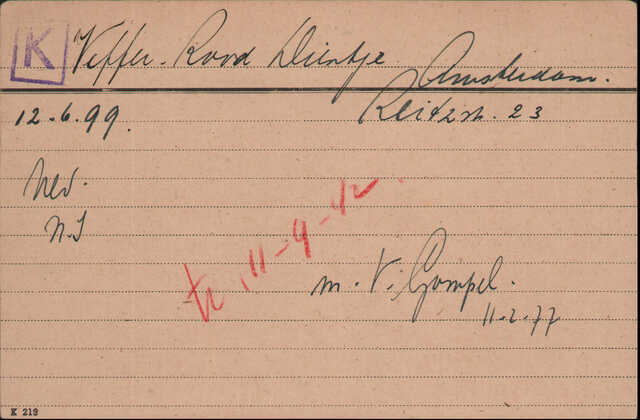 K Veffer-Rood Dientje
Amsterdam.
Reitzstr. 23
12.6.99.
Ned.
N.I
tr. 11-9-42.
m. V. Gompel.
11.2.77
K 219